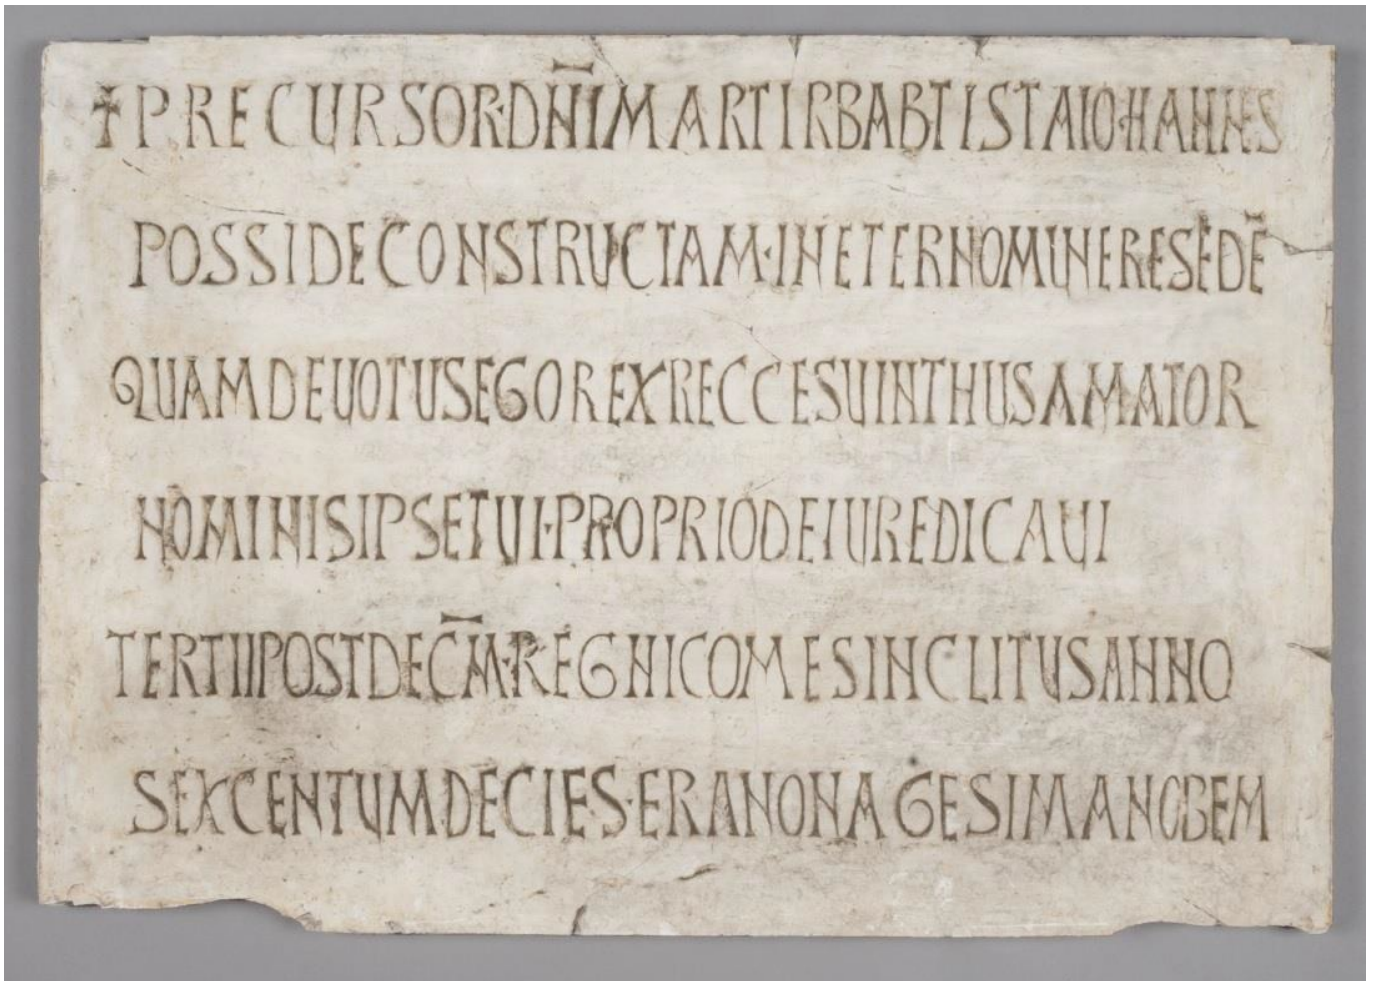 ✝PRECURSOR·DN̅I̅MARTIRBABTISTAIOHANNES
POSSIDECONSTRUCTAM·INETERNOMUNERESEDE̅
QUAMDEUOTUSEGOREXRECCESUINTHUSAMATOR
NOMINISIPSETUI·PROPRIODEIUREDICAUI
TERTIIPOSTDEC̅M̅·REGNICOMESINCLITUSANNO
SEXCENTUMDECIES·ERANONAGESIMANOBEM